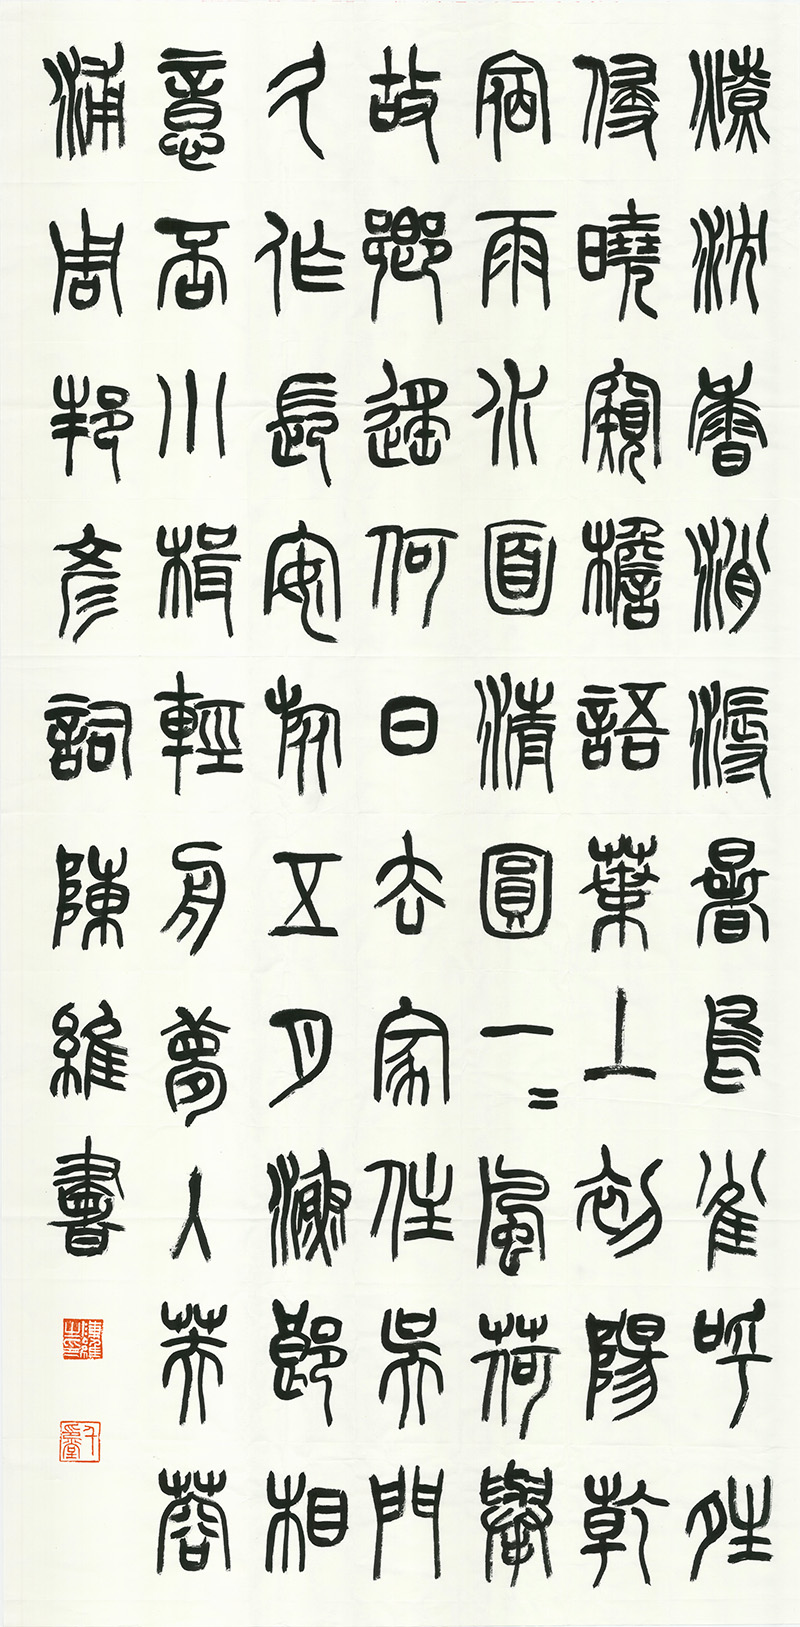 燎沈香消溽暑鳥雀呼晴
侵曉窺檐語葉上初陽乾
宿雨水面清圓一〻風荷舉
故鄉遙何日去家住吳門
久作長安旅五月漁郎相
意否小楫輕舟夢入芙蓉
浦周邦彥詞陳維書